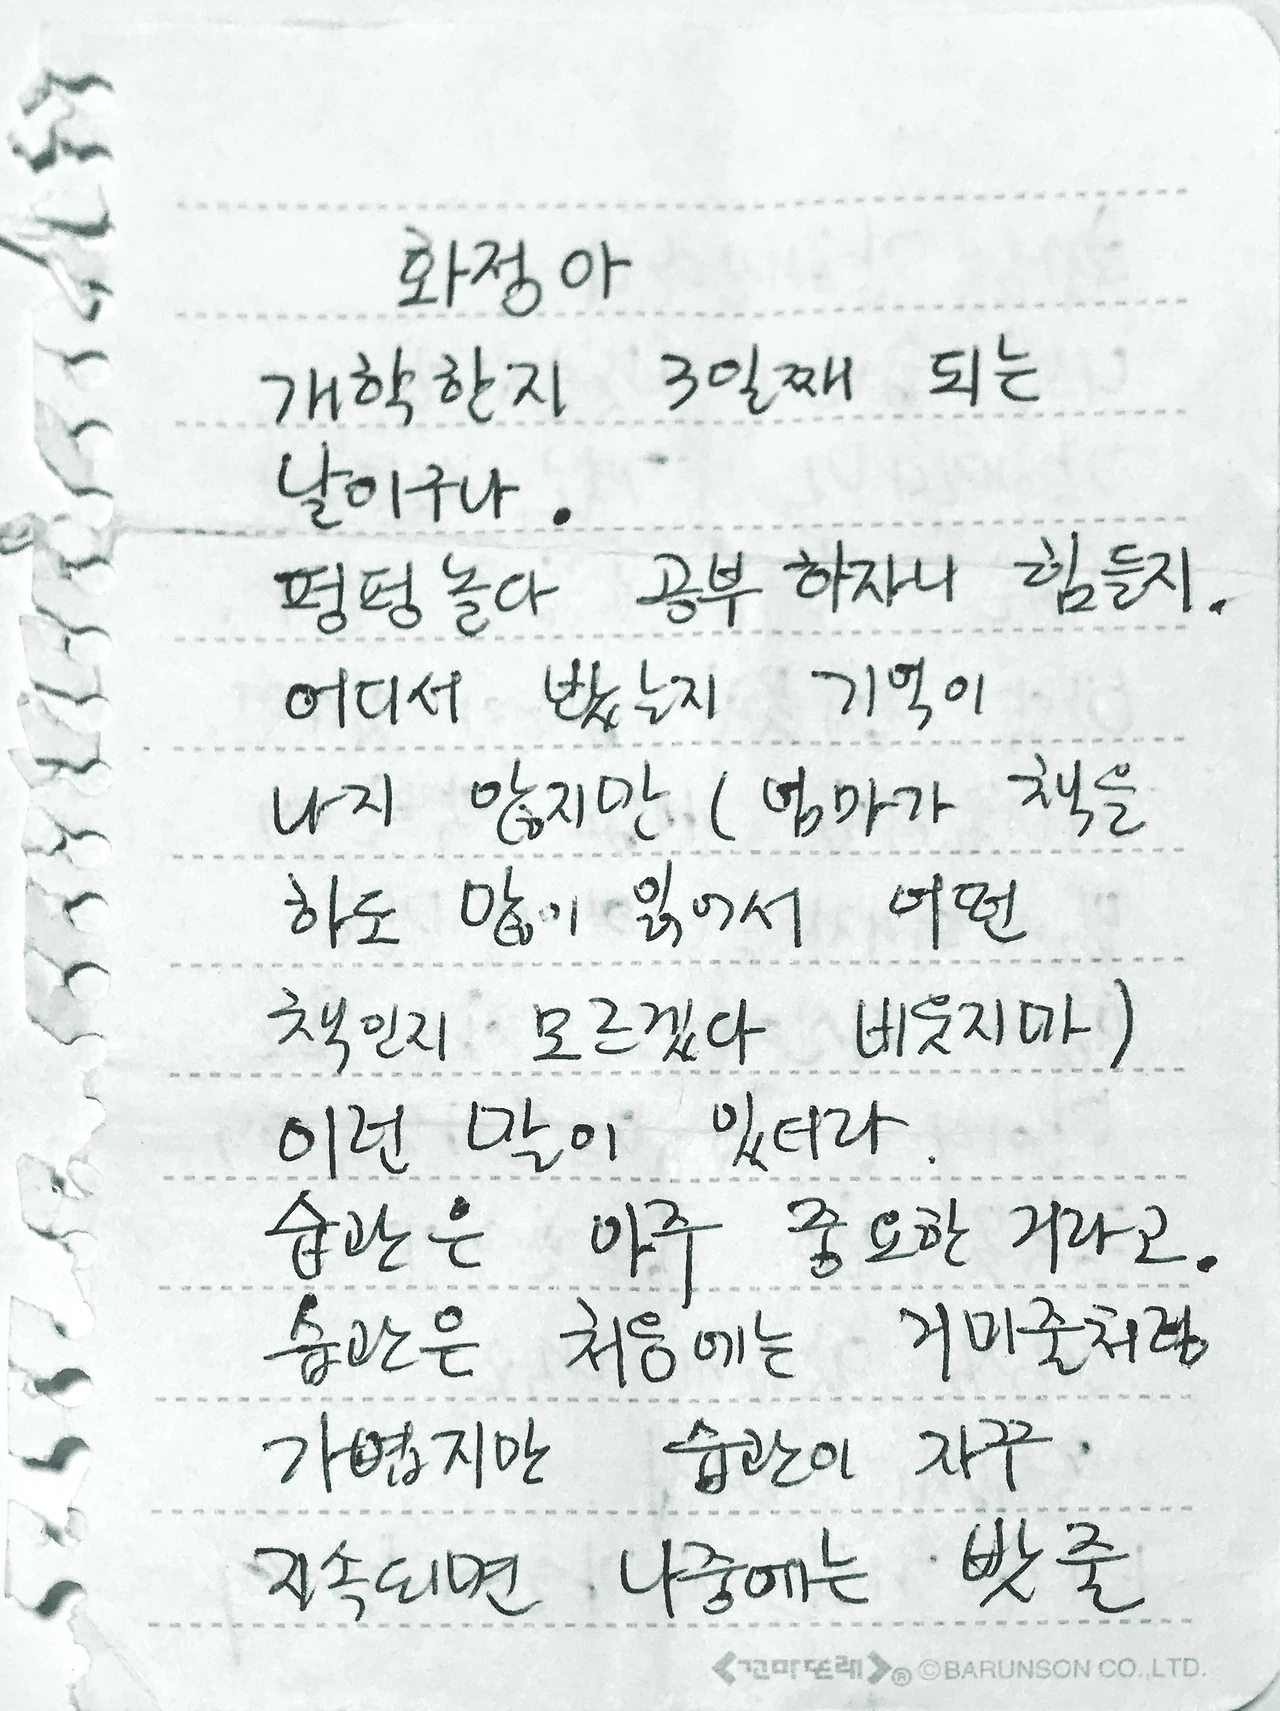 화정아
개학한지 3일째 되는
날이구나.
펑펑놀다 공부하자니 힘들지.
어디서 봤는지 기억이
나지 않지만 (엄마가 책을
하도 많이 읽어서 어떤
책인지 모르겠다 비웃지마)
이런 말이 있더라.
습관은 아주 중요한 거라고.
습관은 처음에는 거미줄처럼
가볍지만 습관이 자꾸
지속되면 나중에는 밧줄
<꼬마또래>® ©BARUNSON CO.,LTD.